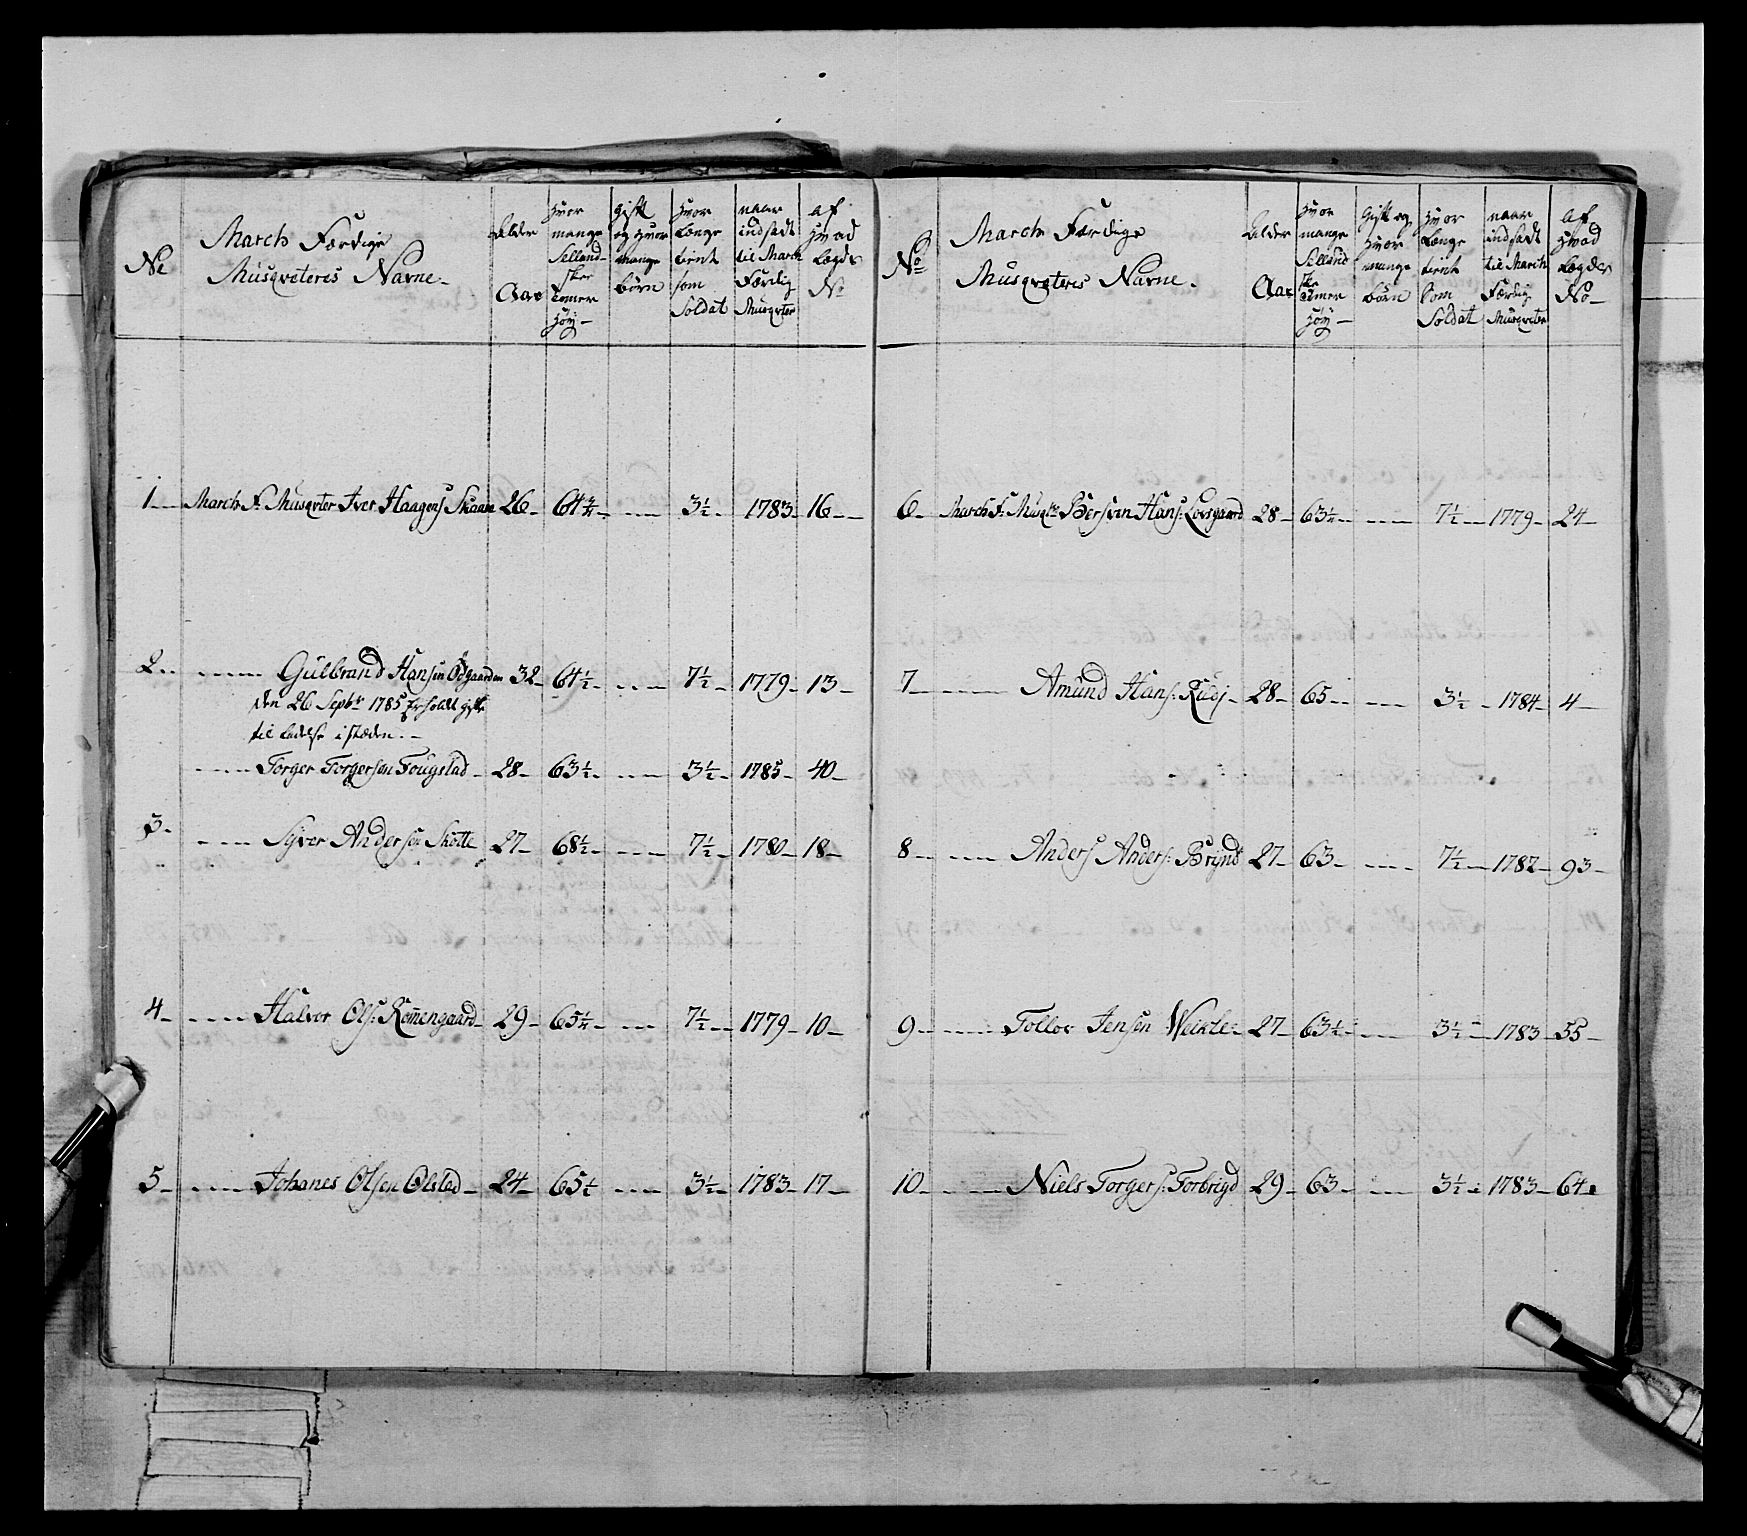 No
March Færdige
Musqveteres Navne.
Alder
Aar
Hvor
mange
Sellands-
ske
Tomer
Høy
gift
og Hvor
mange
børn
Hvor
Længe
tient
som
Soldat
naar
indsadt
til March
Færdig
Musqveter
af
Hvad
Lægds
No
1 March F. Musqveter Iver Haagens Skaare 26 64¾ 3½ 1783 16
2 Gulbrand Hansen Ødgaarden 32 64½ 7½ 1779 13
den 26 Septbr 1785 Erholdt
til i stæden
Torger Torgersen Fougstad 28 63½ 3½ 1785 40
3 Syver Andersen Skøtte 27 68½ 7½ 1780 18
4 Halvor Ols: Romengaard 29 65¼ 7½ 1779 10
5 Johanes Olsen Olstad 24 65½ 3½ 1783 17
No
March Færdige
Musqveteres Navne.
Alder
Aar
Hvor
mange
Selland
ske
Tomer
Høy
Gift og
Hvor
mange
børn
Hvor
Længe
tient
som
Soldat
naar
indsadt
til March
Færdig
Musqveter
af
Hvad
Lægds
No
6 March F: Musqtr Bersven Hans: Lovsgaard 28 63¼ 7½ 1779 24
7 Amund Hans: Ruds 28 65 3½ 1784 4
8 Anders Anders: Brynd 27 63 7½ 1782 93
9 Tollov Jensen Weikle 27 63½ 3½ 1783 55
10 Niels Torgers: Forbrigd 29 63 3½ 1783 64